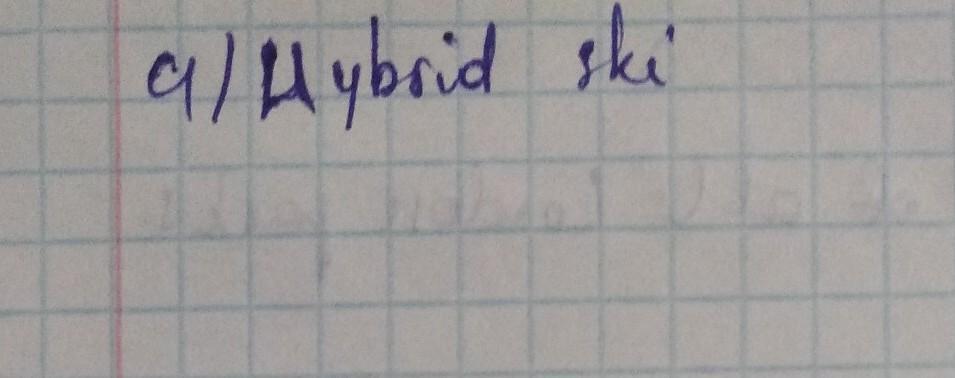 a) Hybrid ski